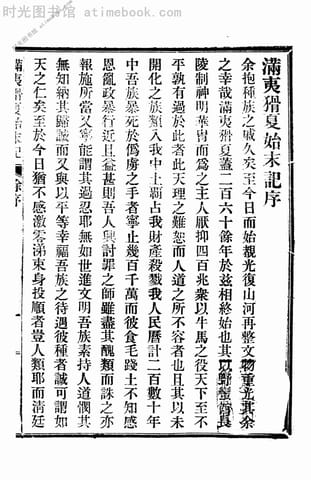 时光图书馆 - atimebook.com
滿夷猾夏始末記序
余抱種族之戚久矣至今日而始覩光復山河再整文物重光其余
之幸哉滿夷猾夏蓋二百六十餘年於茲相終始也其以野蠻酋長
陵制神明華冑而爲之主人厭抑四百兆衆以牛馬之役天下至不
平孰有過於此者此天理之難恕而人道之所不容者也且其以未
開化之族類入我中土霸占我財產殺戮我人民曆計二百數十年
中吾族非命死於僞虜之手者寧止幾百千萬而彼食毛踐土不知感
恩亂政暴行近且益甚則吾人興討罪之師雖盡其醜類而誅之亦
報施所當又寧能謂其過忍耶無如世進文明吾族素持人道憫其
無知納其歸誠而又與以平等幸福吾族之待遇彼種者誠可謂如
天之仁矣至於今日猶不感激零涕束身投順者豈人類耶而淸廷
滿夷猾夏始末記
序